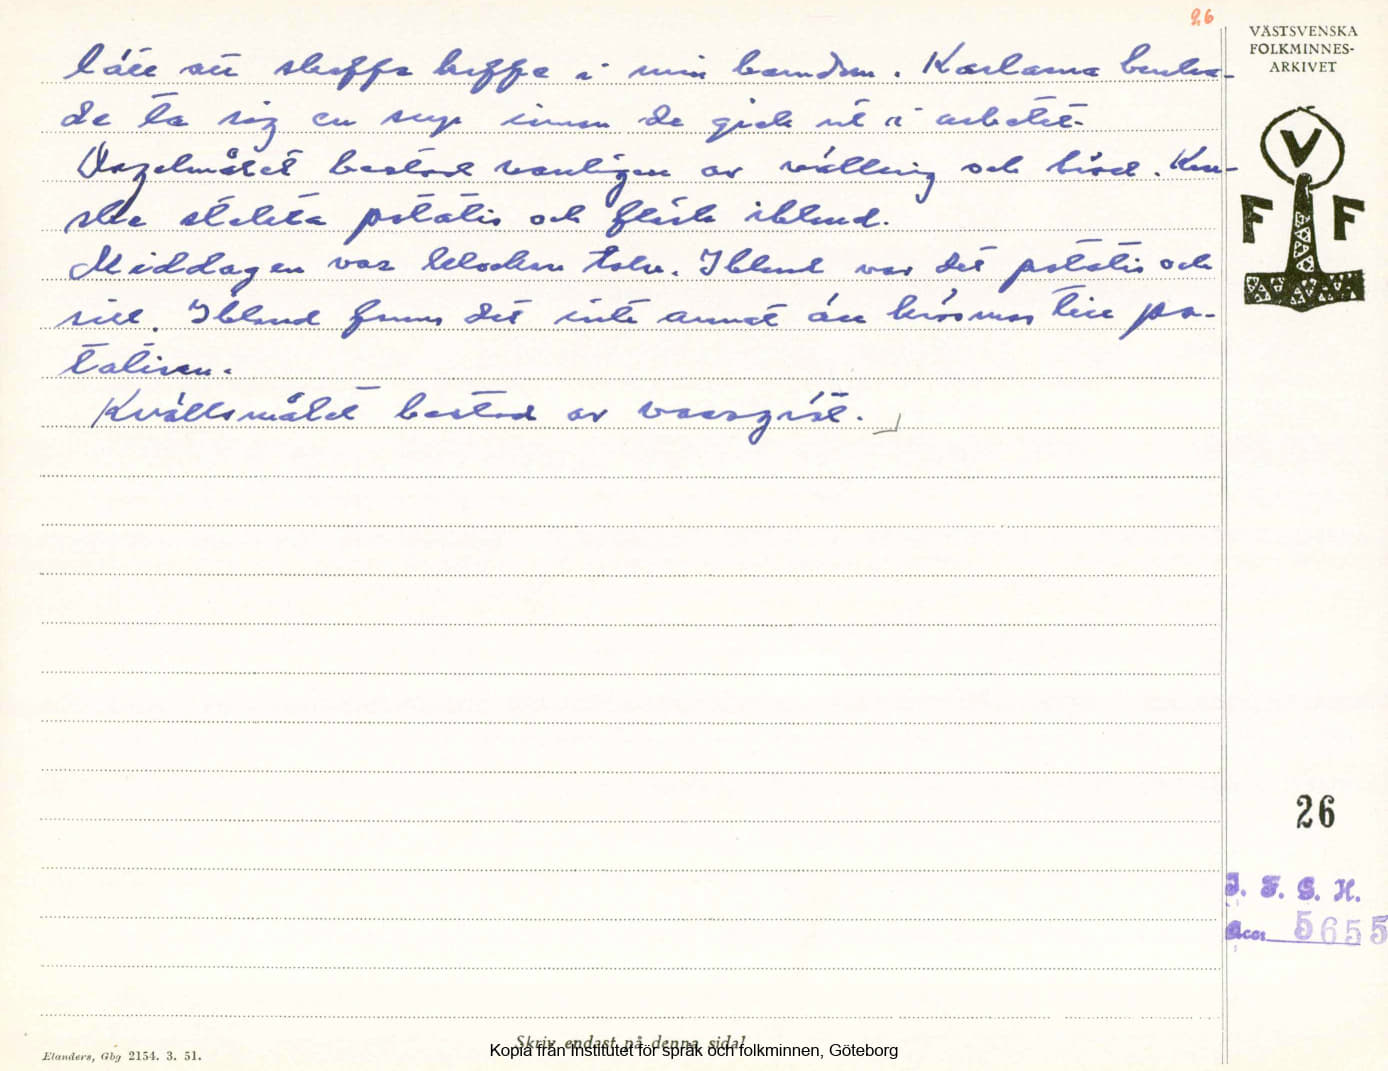 26
VÄSTSVENSKA
FOLKMINNES-
ARKIVET
lätt att skaffa kaffe i min barndom. Karlarna bruka-
de ta sig en sup innan de gick ut i arbetet.
Dagelmålet bestod vanligen av välling och bröd. Kan-
ske stekta potatis och fläsk ibland.
Middagen var klockan tolv. Ibland var det potatis och
sill. Ibland fanns det inte annat än till po-
tatisen.
Kvällsmålet bestod av
V
F F
26
I. F. G. H.
Acc. 5655
Skriv endast på denna sida!
Elanders, Gbg 2154. 3. 51.
Kopia från Institutet för språk och folkminnen, Göteborg